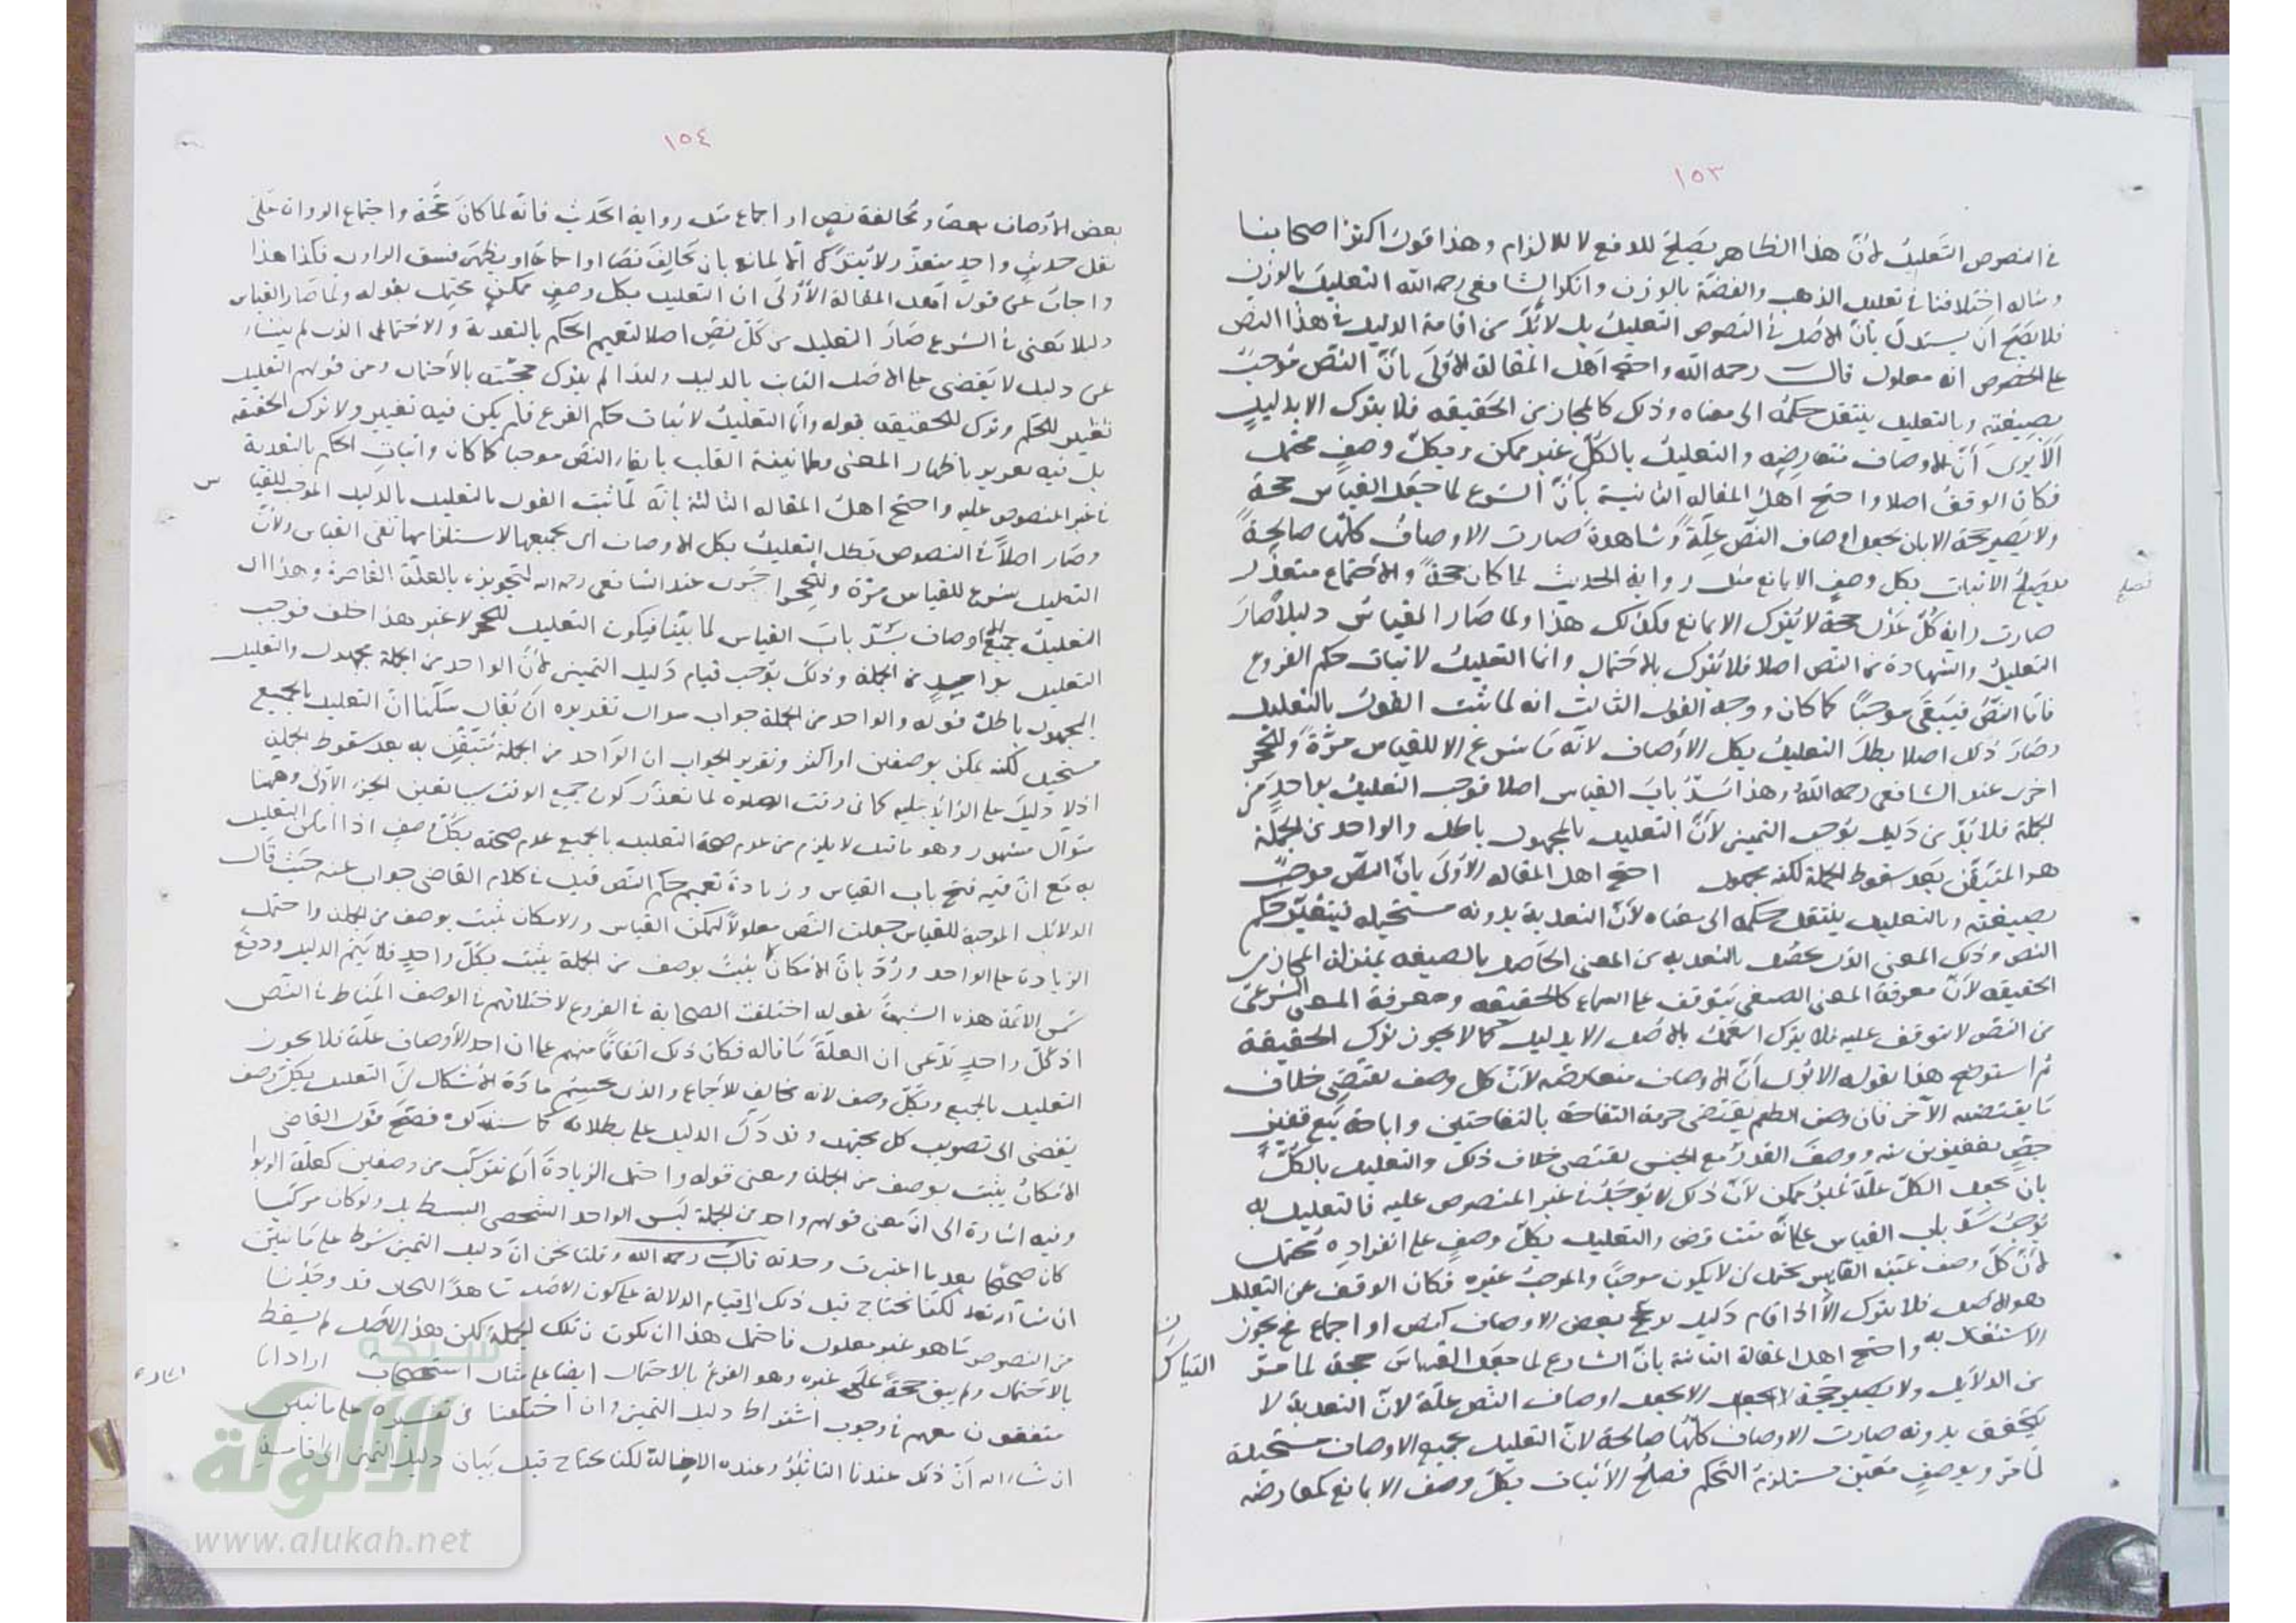 ١٥٣
في النصوص التعليل لأنّ هذا الظاهر يصلح للدفع لا للالزام وهذا قول اكثر اصحابنا
ومثاله اختلافنا في تعليل الذهب والفضة بالوزن وانكر الشافعي رحمه الله التعليل بالوزن
فلا يصح ان يستدل بانّ الاصل في النصوص التعليل بل لا بُدّ من اقامة الدليل في هذا النص
على الخصوص انه معلول قال رحمه الله واحتج اهل المقالة الاولى بانّ النصّ موجبٌ
بصيغته وبالتعليل ينتقل حكمه الى معناه وذلك كالمجاز من الحقيقه فلا يترك الا بدليلٍ
الا يرى انّ الاوصاف متعارضه والتعليل بالكلّ غير ممكن وبكلّ وصفٍ محتمل
فكان الوقف اصلا واحتج اهل المقاله الثانية بانّ الشرع لما جعل القياس حجةً
ولا يصير حجة الا بان يجعل اوصاف النص علةً وشاهدةً صارت الاوصاف كلّها صالحةً
فصلح الاثبات بكل وصفٍ الا بمانع مثل رواية الحديث لما كان حجةً والاجتماع متعذّر
فصلح
صارت رواية كلّ عدلٍ حجة لا يُترك الا بمانع فكذلك هذا ولما صار القياس دليلا صار
التعليل والشهادة من النص اصلا فلا يترك بالاحتمال وانما التعليل لاثبات حكم الفروع
فاما النصّ فيبقى موجبًا كما كان ووجه القول الثالث انه لما ثبت القول بالتعليل
وصار ذلك اصلا بطل التعليل بكل الاوصاف لانّه ما شرع الا للقياس مرّةً وللحجر
اخرى عند الشافعي رحمه الله وهذا يسُدّ باب القياس اصلا فوجب التعليل بواحدٍ من
الجملة فلا بُدّ من دليل يوجب التمييز لأنّ التعليل بالمجهول باطل والواحد من الجملة
هو المتيقن بعد سقوط الجملة لكنه مجهول احتج اهل المقاله الاولى بانّ النصّ موجبٌ
بصيغته وبالتعليل ينتقل حكمه الى معناه لأنّ التعدية بدونه مستحيله فيتغيّر حكم
النص وذلك المعنى الذي يحصُل بالتعدية من المعنى الحاصل بالصيغه بمنزلة المجاز من
الحقيقه لأنّ معرفة المعنى الصيغي يتوقف على السماع كالحقيقه ومعرفة المعنى الشرعي
من النص لا تتوقف عليه فلا يترك العمل بالاصل الا بدليل كما لا يجوز ترك الحقيقة
ثم استوضح هذا بقوله الا يُرى انّ الاوصاف متعارضه لأنّ كل وصف يقتضي خلاف
ما يقتضيه الآخر فان وصف الطعم يقتضي حرمة التفاحة بالتفاحتين واباحة بيع قفيز
جصٍ بقفيزين منه ووصف القدر مع الجنس يقتضي خلاف ذلك والتعليل بالكلّ
بان يجعل الكلّ علّة غير ممكن لأنّ ذلك لا يوجد في غير المنصوص عليه فالتعليل به
يوجب سدّ باب القياس على انّه تناقض والتعليل بكلّ وصفٍ على انفراده محتمل
لأنّ كلّ وصف عيّنه القايس يحتمل ان لا يكون موجبًا والموجب غيره فكان الوقف عن التعليل
هو الاصل فلا يترك الا اذا قام دليل يرجح بعض الاوصاف كنص او اجماع فح يجوز
الاشتغال به واحتج اهل المقالة الثانية بانّ الشارع لما جعل القياس حجة لما مرّ
القياس
من الدلايل ولا يصير حجة الا بجعل اوصاف النص علة لانّ التعدية لا
يتحقق بدونه صارت الاوصاف كلّها صالحة لانّ التعليل بجميع الاوصاف مستحيلة
لما مرّ وبوصفٍ معيّن مستلزمة التحكم فصلح الاثبات بكلّ وصف الا بمانع كمعارضه
١٥٤
بعض الاوصاف بعضًا ومخالفة نصٍ او اجماع مثل رواية الحديث فانّه لما كان حجّة واجتماع الرواة على
نقل حديث واحدٍ متعذّر لا يُترك الا لمانع بان يخالف نصًا او اجماعًا او يظهر فسق الراوي فكذا هذا
واجاب عن قول اهل المقالة الأولى ان التعليل بكل وصفٍ ممكن محتمل بقوله ولما صار القياس
دليلا يعني في الشرع صار التعليل من كلّ نصٍّ اصلا لتعميم الحكم بالتعدية والاحتمال الذي لم ينشأ
عن دليل لا يقضي على الاصل الثابت بالدليل ولهذا لم يترك حجيّته بالاحتمال وعن قولهم التعليل
تغيير للحكم وترك للحقيقه بقوله وانما التعليل لاثبات حكم الفرع فلم يكن فيه تغيير ولا ترك الحقيقه
بل فيه تقرير باظهار المعنى وطمانينة القلب بابقاء النص موجبا كما كان واثبات الحكم بالتعدية
في غير المنصوص عليه واحتج اهل المقاله الثالثة بانّه لمّا ثبت القول بالتعليل بالدليل الموجب للقياس
س
وصار اصلًا في النصوص بطل التعليل بكل الاوصاف اي بجميعها لاستلزامها نفى القياس ولأنّ
التعليل شرع للقياس مرّة وللحجر اخرى عند الشافعي رحمه الله لتجويزه بالعلة القاصرة وهذا اي
التعليل بجميع الاوصاف يسُدّ باب القياس لما بيّنا فيكون التعليل للحجر لا غير هذا خلف فوجب
التعليل بواحدٍ من الجملة وذلك يوجب قيام دليل التمييز لأنّ الواحد من الجملة مجهول والتعليل
بالمجهول باطل قوله والواحد من الجملة جواب سوال تقديره ان يقال سلّمنا انّ التعليل بالجميع
مستحيل لكنه يمكن بوصفين او اكثر وتقرير الجواب ان الواحد من الجملة متيقّن به بعد سقوط الجملة
اذ لا دليل على الزائد عليه كما في وقت الصلوة لما تعذّر كون جميع الوقت سببا تعين الجزء الاوّل وههنا
سؤال مشهور وهو ما قيل لا يلزم من عدم صحة التعليل بالجميع عدم صحته بكلّ وصفٍ اذا امكن التعليل
به مع انّ فيه فتح باب القياس وزيادة تعميم حكم النص قيل في كلام القاضي جواب عنه حيث قال
الدلائل الموجبة للقياس جعلت النص معلولاً ليمكن القياس والامكان يثبت بوصف من الجملة واحتمل
الزيادة على الواحد ورُدّ بانّ الامكان كما يثبت بوصف من الجملة يثبت بكلّ واحدٍ فلا يتم الدليل ودفع
شمس الائمة هذه الشبهة بقوله اختلفت الصحابة في الفروع لاختلافهم في الوصف المناط في النص
اذ كلّ واحدٍ يدّعي ان العلة ما قاله فكان ذلك اتفاقًا منهم على ان احد الأوصاف علّة فلا يجوز
التعليل بالجميع وبكلّ وصف لانه مخالف للاجماع والذي يحسم مادّة الاشكال انّ التعليل بكلّ وصف
يفضي الى تصويب كل مجتهد وقد دَلّ الدليل على بطلانه كما سنذكره فصحّ قول القاضي
الامكان يثبت بوصف من الجملة ومعنى قوله واحتمل الزيادة انها تتركّب من وصفين كعلة الربوا
وفيه اشارة الى انّ معنى قولهم واحد من الجملة ليس الواحد الشخصي البسيط بل ولو كان مركّبا
كان صحيحًا بعد ما اعتبرت وحدته قال رحمه الله وقلنا نحن انّ دليل التمييز شرط على ما نبيّن
ان شاء الله لكنّا نحتاج قبل ذلك الى قيام الدلالة على كون الاصل شاهدًا للحال قد وجدنا
من النصوص ما هو غير معلول فاحتمل هذا ان يكون من تلك الجملة لكن هذا الاصل لم يسقط
بالاحتمال ولم يبق حجة على غيره وهو الفرع بالاحتمال ايضا على مثال استصحاب اراد انا
متفقون معهم في وجوب اشتراط دليل التمييز وان اختلفنا في تفسيره على ما نبين
ان شاء الله انّ ذلك عندنا التاثير وعنده الاخالة لكنا نحتاج قبل بيان دليل التمييز الى اقامة
شبكة
الألوكة
www.alukah.net